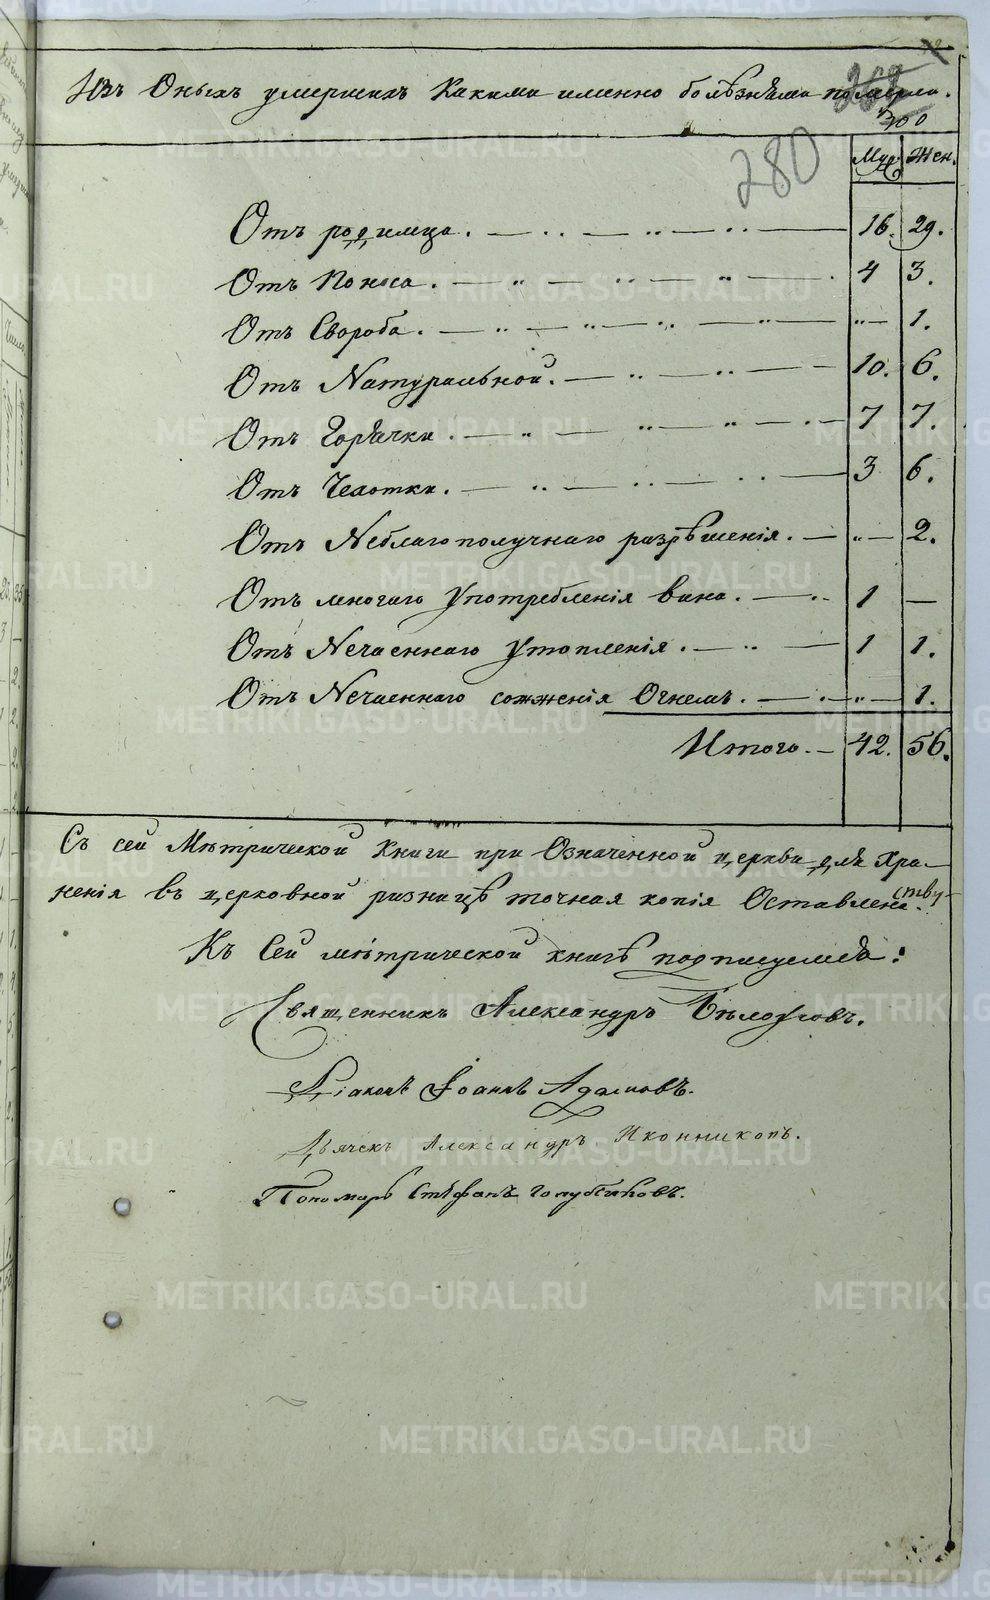 Изъ Оныхъ умершихъ Какими именно болѣзнями померли.
300
280
Муж. Жен.
Отъ родимца. 16. 29.
Отъ Поноса. 4 3.
Отъ Свороба. „ 1.
Отъ Натуральной. 10. 6.
Отъ Горячки. 7 7.
Отъ Чехотки. 3 6.
Отъ Неблагополучнаго разрѣшенія. „ 2.
Отъ многаго Употребленія вина. 1 —
Отъ Нечаеннаго Утопленія. 1 1.
Отъ Нечаеннаго сожженія Огнемъ. „ 1.
Итого. 42. 56.
Съ сей Метрической Книги при Означенной церкви для Хра-
ненія въ церковной ризницѣ точная копія Оставлена.
Къ Сей метрической книгѣ подписуемся:
Священникъ Александръ Бѣлоусовъ.
Діаконъ Іоаннъ Адамовъ.
Дьячекъ Александръ Иконниковъ.
Пономарь Стефанъ Голубчиковъ.
METRIKI.GASO-URAL.RU